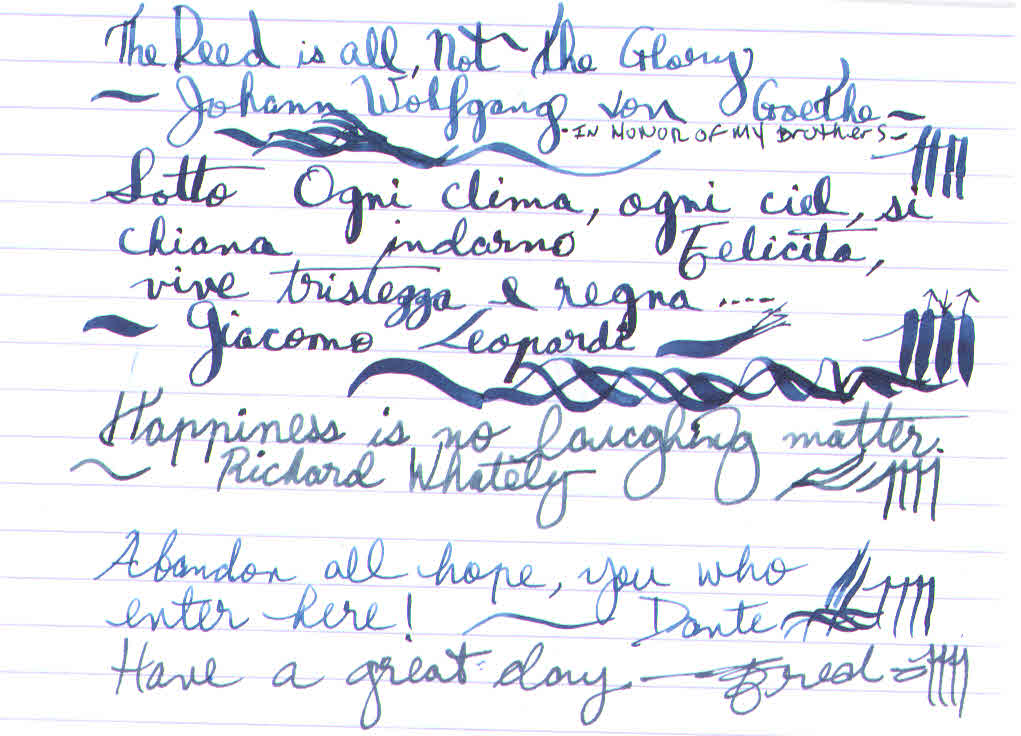 The Deed is all, Not the Glory
~ Johann Wolfgang von Goethe ~
- IN HONOR OF MY BrotHers -
Sotto Ogni clima, ogni ciel, si
chiana indarno Felicita,
vive tristezza e regna ....
~ Giacomo Leopardi
Happiness is no laucghing matter.
~ Richard Whately
Abandon all hope, you who
enter here! ~ Dante
Have a great day. — Fred =